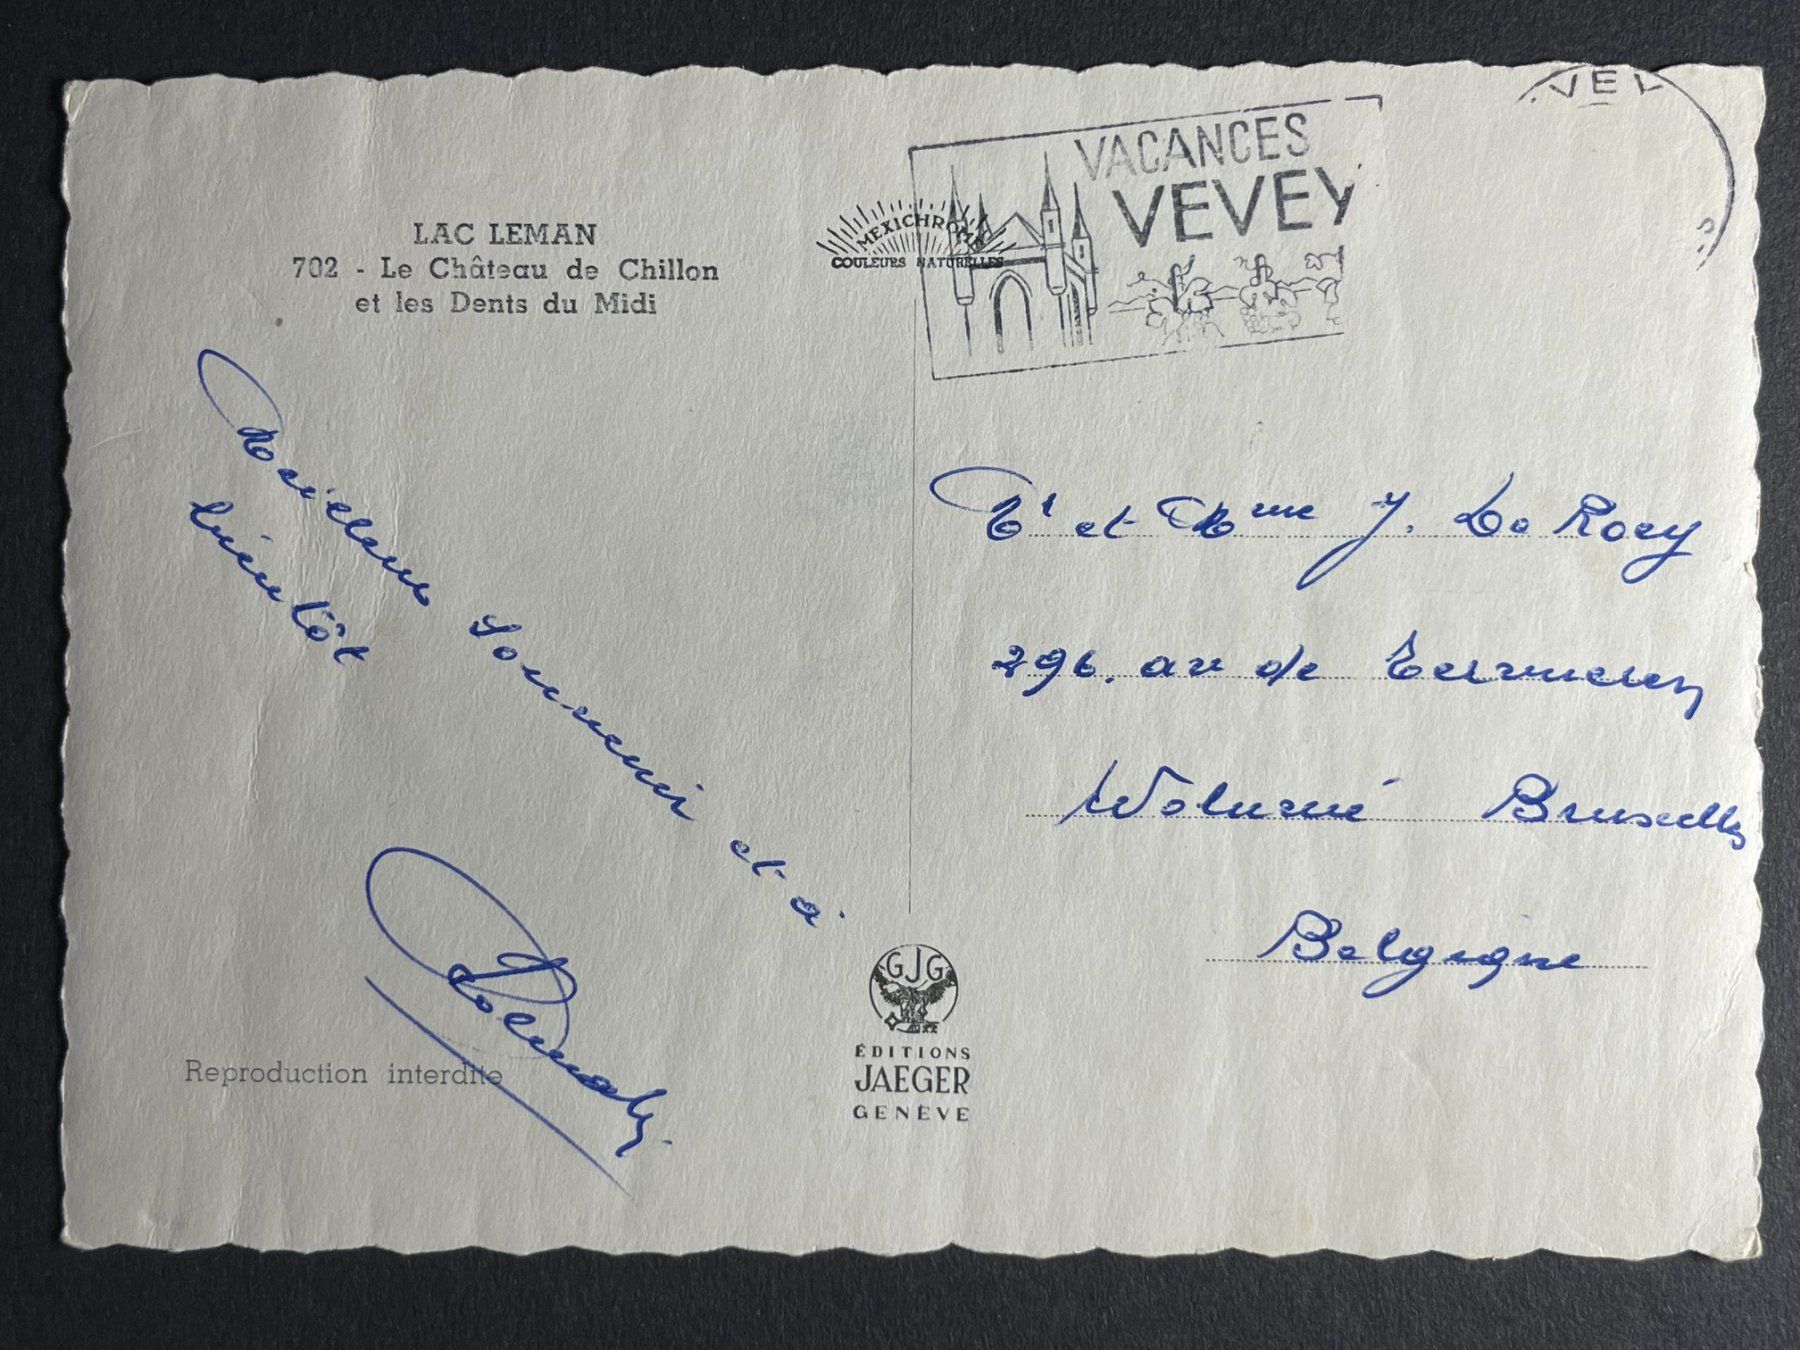 LAC LEMAN
702 - Le Château de Chillon
et les Dents du Midi
MEXICHROME
COULEURS NATURELLES
VACANCES
VEVEY
VEV
Meilleur souvenir et à
bientôt
Mr et Mme J. De Roey
296. av de Tervueren
Woluwé Bruxelles
Belgique
Reproduction interdite
GJG
ÉDITIONS
JAEGER
GENÈVE